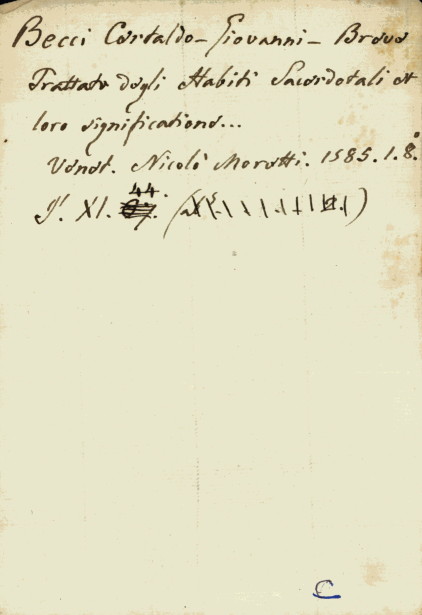 Becci Certaldo - Giovanni - Breve
Trattato degli Habiti Sacerdotali et
loro significatione...
Venet. Nicolò Moretti. 1585. 1. 8.°
44.
XI.
C